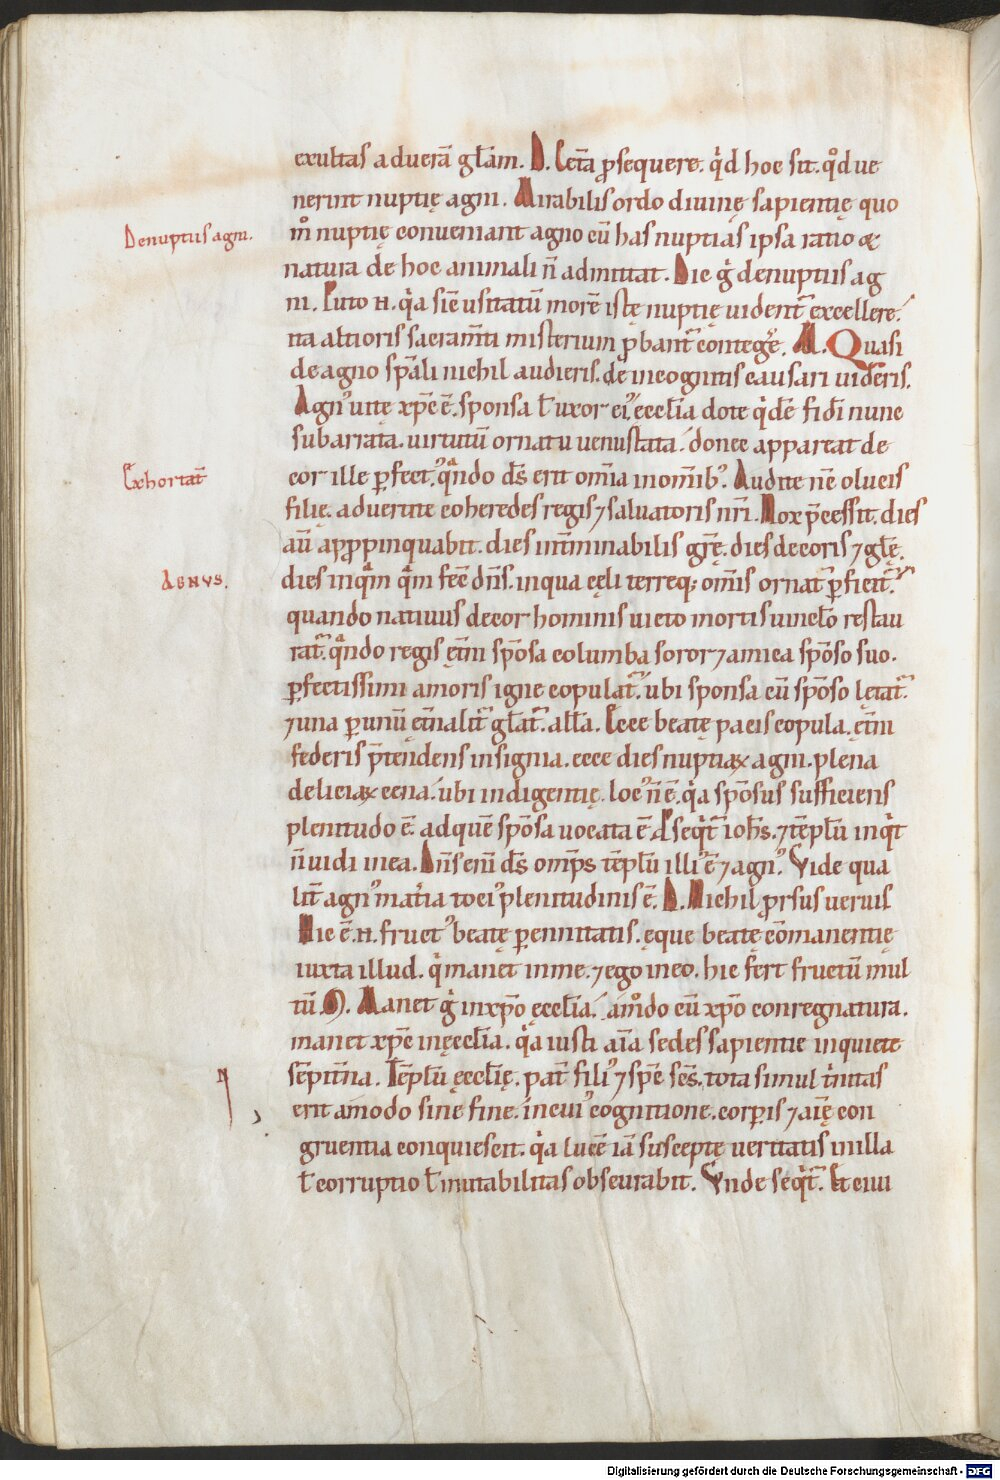 exultas ad uerā gl̄am. D. Cetā ꝓsequere. qͥd hoc sit. qͦd ue
nerint nuptię agni. Mirabilis ordo diuinę sapientię quo
De nuptiis agni.
mͦ nuptię conueniant agno cū has nuptias ipsa ratio &
natura de hoc animali n̄ admittat. Dic gͦ de nuptiis ag
ni. Puto .n. qͥa sic̄ usitatū morē istę nuptię uident̄ excellere.
ita altioris sacram̄ti misterium ꝓbant̄ contegere. M. Quasi
de agno sp̄ali nichil audieris. de incognitis causari uideris.
Agn᷒ uitę xp̄c ē. sponsa ł uxor ei᷒ ęccl̄ia dote qͥdē fidī nunc
subarrata. uirtutū ornatu uenustata. donec appareat de
Exhortat̄
cor ille ꝑfect᷒. qͣndo ds̄ erit om̄ia in om̄ib᷒. Audite nc̄ o lucis
filię. aduertite coheredes regis ⁊ saluatoris nr̄i. Nox p̄cessit. dies
aū appropinquabit. dies int̄minabilis gr̄ę. dies decoris ⁊ gl̄ę.
AGNVS.
dies inqͣm qͣm fec̄ dn̄s. in qua cęli terreq; om̄is ornat᷒ ꝑficit᷒.
quando natiuus decor hominis uicto mortis uincl̄o restau
rat᷒. qͣndo regis ęt̄ni sp̄osa columba soror ⁊ amica sp̄oso suo.
ꝑfectissimi amoris igne copulat᷒. ubi sponsa cū sp̄oso lętat᷒.
⁊ una ꝑ unū ęt̄nalit̄ gl̄at᷒. all̄a. Ecce beatę pacis copula. ęt̄ni
federis p̄tendens insignia. ecce dies nuptiaꝝ agni. plena
deliciaꝝ cena. ubi indigentię loc᷒ n̄ ē. qͥa sp̄osus sufficiens
plenitudo ē. ad quē sp̄osa uocata ē. Et seqͥt᷒ ioh̄s. ⁊ tēpl̄ū inqͥt
n̄ uidi in ea. Dn̄s enī ds̄ om̄ps tēpl̄ū illi᷒ ē ⁊ agn᷒. Vide qua
lit̄ agn᷒ mat̄ia toci᷒ plenitudinis ē. D. Nichil ꝓrsus uerius
Hic ē .n. fruct᷒ beatę ꝑennitatis. ęque beatę cōmanentię
iuxta illud. qͥ manet in me. ⁊ ego in eo. hic fert fructū mul
tū. M. Manet gͦ in xp̄o ęccl̄ia. am̊do cū xp̄o conregnatura.
manet xp̄c in ęccl̄ia. qͥa iusti aīa sedes sapientie in quiete
sēpit̄na. Tēpl̄ū ęccl̄ię. pat̄ fili᷒ ⁊ sp̄c sc̄s. tota simul t̄nitas
erit amodo sine fine. in cui᷒ cognitione. corꝑis ⁊ aīę con
gruentia conquiescit. qͥa lucē iā susceptę ueritatis nulla
ł corruptio ł mutabilitas obscurabit. Vnde seqͥt᷒. Et ciui